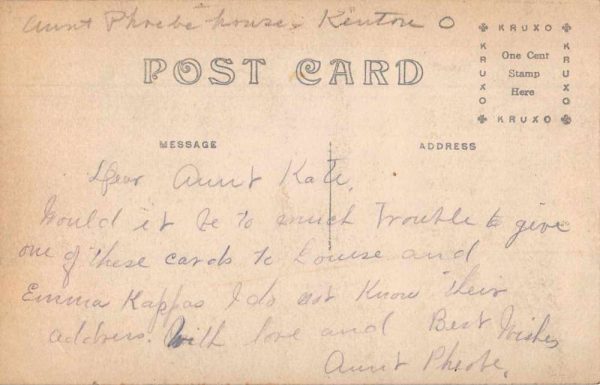 Aunt Phoebe house Kenton O
POST CARD
KRUXO
KRUXO
KRUXO
KRUXO
One Cent
Stamp
Here
MESSAGE
ADDRESS
Dear Aunt Kate,
Would it be to much Trouble to give
one of these cards to Louise and
Emma Kappas I do not Know their
address. With love and Best Wishes
Aunt Pheobe.